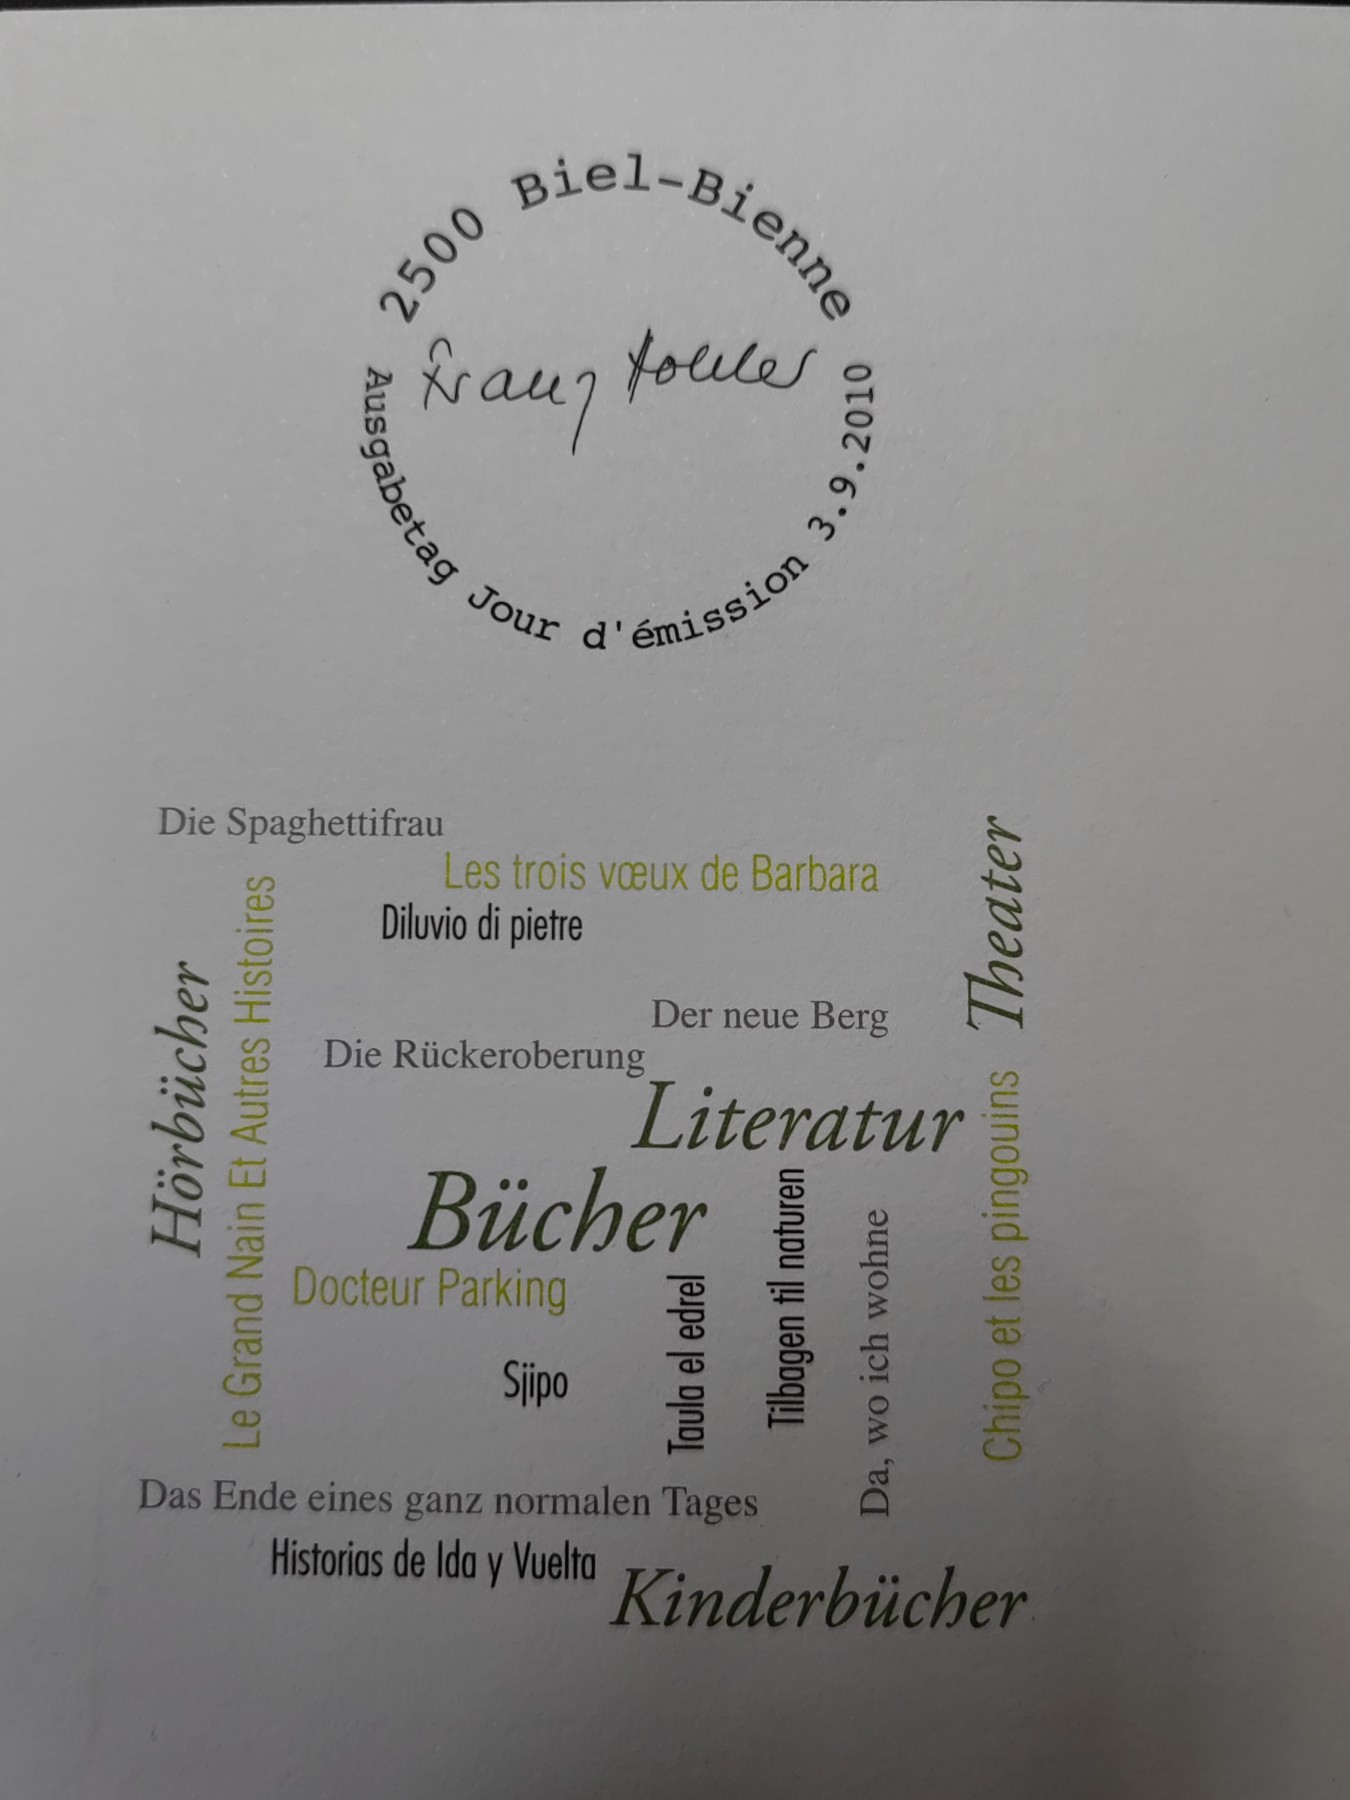 2500 Biel-Bienne
Franz Hohler
Ausgabetag Jour d'émission 3.9.2010
Die Spaghettifrau
Les trois vœux de Barbara
Diluvio di pietre
Theater
Hörbücher
Le Grand Nain Et Autres Histoires
Der neue Berg
Die Rückeroberung
Literatur
Bücher
Chipo et les pingouins
Docteur Parking
Sjipo
Taula el edrel
Tilbagen til naturen
Da, wo ich wohne
Das Ende eines ganz normalen Tages
Historias de Ida y Vuelta
Kinderbücher